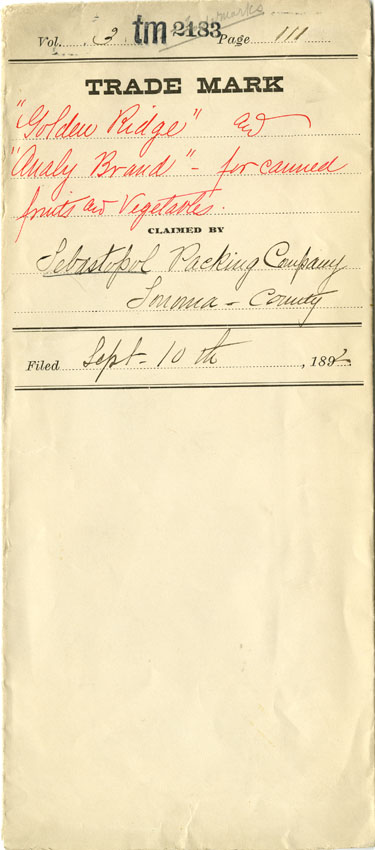 Vol. 3. tm 2183 Page 111
TRADE MARK
"Golden Ridge" and
"Analy Brand" - for canned
fruits and Vegetables.
CLAIMED BY
Sebastopol Packing Company
Sonoma - County
Filed Sept - 10 th, 1892.